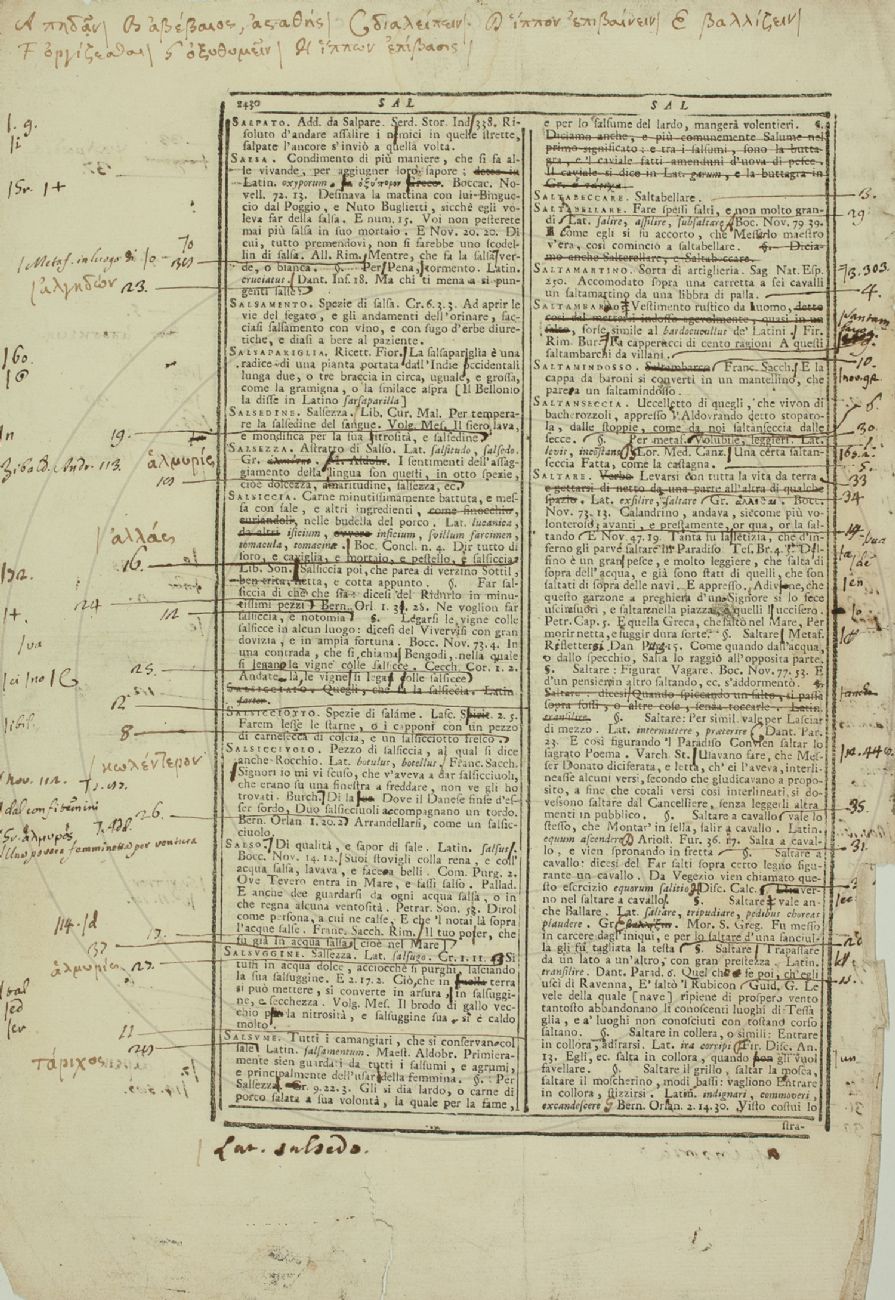 A πηδᾶν| B ἀβέβαιος, ἀσταθής| C διαλείπειν. D ἵππον ἐπιβαίνειν| E βαλλίζειν|
F ὀργίζεσθαι| G ὀξυθυμεῖν| H ἵππων ἐπίβασις|
2430 SAL
SALPATO. Add. da Salpare. Serd. Stor. Ind. 338. Ri-
soluto d'andare assalire i nemici in quelle strette,
salpate l'ancore s'inviò a quella volta.
SALSA. Condimento di più maniere, che si fa al-
le vivande, per aggiugner loro sapore; detto in
Latin. oxyporum. ὀξύπορον Greco. Boccac. No-
vell. 72. 13. Desinava la mattina con lui Bingue-
cio dal Poggio, e Nuto Buglietti, sicchè egli vo-
leva far della salsa. E num. 15. Voi non pesterete
mai più salsa in suo mortaio. E Nov. 20. 20. Di
cui, tutto premendovi, non si farebbe uno scodel-
lin di salsa. All. Rim. Mentre, che fa la salsa ver-
de, o bianca. §. Per Pena, tormento. Latin.
cruciatus. Dant. Inf. 18. Ma chi ti mena a si pun-
genti salse?
SALSAMENTO. Spezie di salsa. Cr. 6. 3. 3. Ad aprir le
vie del fegato, e gli andamenti dell'orinare, fac-
ciasi salsamento con vino, e con sugo d'erbe diure-
tiche, e diasi a bere al paziente.
SALSAPARIGLIA. Ricett. Fior. La salsapariglia è una
radice di una pianta portata dall'Indie occidentali
lunga due, o tre braccia in circa, uguale, e grossa,
come la gramigna, o la smilace aspra [Il Bellonio
la disse in Latino sarsaparilla]
SALSEDINE. Salsezza. Lib. Cur. Mal. Per tempera-
re la salsedine del sangue. Volg. Mes. Il siero lava,
e mondifica per la sua nitrosità, e salsedine
SALSEZZA. Astratto di Salso. Lat. salsitudo, salsedo.
Gr. M. Aldobr. I sentimenti dell'assag-
giamento della lingua son questi, in otto spezie,
cioè dolcezza, amaritudine, salsezza, ec.
SALSICCIA. Carne minutissimamente battuta, e mes-
sa con sale, e altri ingredienti, come finocchio,
curiandoli, nelle budella del porco. Lat. lucanica,
da altri isicium, ovvero insicium, suillum farcimen,
tomacula, tomacinæ. Boc. Concl. n. 4. Dir tutto dì
foro, e caviglia, e mortaio, e pestello, e salsiccia
Lib. Son. Salsiccia poi, che parea di verzino Sottil,
ben trita, netta, e cotta appunto. §. Far sal-
siccia di che che sia: dicesi del Ridurlo in minu-
tissimi pezzi. Bern. Orl. 1. 3. 28. Ne voglion far
salsiccia, e notomia. §. Legarsi le vigne colle
salsicce in alcun luogo: dicesi del Vivervisi con gran
dovizia, e in ampia fortuna. Bocc. Nov. 73. 4. In
una contrada, che si chiama Bengodi, nella quale
si legano le vigne colle salsicce. Cecch. Cor. 1. 2.
Andate là, le vigne si legan colle salsicce
SALSICCIAIO. Quegli, che fa la salsiccia. Latin.
fartor.
SALSICCIOTTO. Spezie di salame. Lasc. Spirit. 2. 5.
Farem lesse le starne, o i capponi con un pezzo
di carnesecca di coscia, e un salsicciotto fresco
SALSICCIUOLO. Pezzo di salsiccia, al qual si dice
anche Rocchio. Lat. botulus, botellus. Franc. Sacch.
Signori io mi vi scuso, che v'aveva a dar salsicciuoli,
che erano su una finestra a freddare, non ve gli ho
trovati. Burch. Di là Dove il Danese finse d'es-
ser sordo, Duo salsicciuoli accompagnano un tordo.
Bern. Orlan. 1. 20. 2. Arrandellarsi, come un salsic-
ciuolo.
SALSO. Di qualità, e sapor di sale. Latin. salsus.
Bocc. Nov. 14. 12. Suoi stovigli colla rena, e coll'
acqua salsa, lavava, e facea belli. Com. Purg. 2.
Ove Tevero entra in Mare, e fassi salso. Pallad.
E anche dee guardarsi da ogni acqua salsa, o in
che regna alcuna ventosità. Petrar. Son. 53. Dirol
come persona, a cui ne calse, E che 'l notai là sopra
l'acque salse. Franc. Sacch. Rim. Il tuo poter, che
fu già in acqua salsa [cioè nel Mare]
SALSUGGINE. Salsezza. Lat. salsugo. Cr. 1. 11. Si
tutti in acqua dolce, acciocchè si purghi, lasciando
la sua salsuggine. E 2. 17. 2. Ciò, che in quella terra
si può mettere, si converte in arsura, in salsuggi-
ne, e secchezza. Volg. Mes. Il brodo di gallo vec-
chio per la nitrosità, e salsuggine sua, si è caldo
molto.
SALSUME. Tutti i camangiari, che si conservan col
sale. Latin. salsamentum. Maest. Aldobr. Primiera-
mente sien guardati da tutti i salsumi, e agrumi,
e principalmente dell'usar della femmina. §. Per
Salsezza. Cr. 9. 22. 3. Gli si dia lardo, o carne di
porco salata a sua volontà, la quale per la fame,
SAL
e per lo salsume del lardo, mangerà volentieri. §.
Diciamo anche, e più comunemente Salume nel
primo significato: e tra i salsumi, sono la butta-
gra, e 'l caviale fatti amenduni d'uova di pesce.
Il caviale si dice in Lat. garum, e la buttagra in
Gr.
SALTABECCARE. Saltabellare.
SALTABELLARE. Fare spessi salti, e non molto gran-
di. Lat. salire, assilire, subsultare. Boc. Nov. 79. 39.
E come egli si fu accorto, che Messerlo maestro
v'era, così cominciò a saltabellare. §. Dicia-
mo anche Salterellare, e Saltabeccare.
SALTAMARTINO. Sorta di artiglieria. Sag. Nat. Esp.
250. Accomodato sopra una carretta a sei cavalli
un saltamartino da una libbra di palla.
SALTAMBARCO. Vestimento rustico da uomo, detto
così dal mettersi indosso agevolmente, quasi in un
salto, forse, simile al bardocucullus de' Latini. Fir.
Rim. Bur. Fa capperucci di cento ragioni A questi
saltambarchi da villani.
SALTAMINDOSSO. Saltambarco. Franc. Sacch. E la
cappa da baroni si convertì in un mantellino, che
parea un saltamindosso.
SALTANSECCIA. Uccelletto di quegli, che vivon di
bacherozzoli, appresso l'Aldovrando detto stoparo-
la, dalle stoppie, come da noi saltanseccia dalle
secce. §. Per metaf. Volubile, leggieri. Lat.
levis, inconstans. Lor. Med. Canz. Una certa saltan-
seccia Fatta, come la castagna.
SALTARE. Verbo Levarsi con tutta la vita da terra
e gettarsi di netto da una parte all'altra di qualche
spazio. Lat. exsilire, saltare. Gr. Bocc.
Nov. 73. 13. Calandrino, andava, siccome più vo-
lonteroso, avanti, e prestamente, or qua, or là sal-
tando. E Nov. 47. 19. Tanta fu la letizia, che d'in-
ferno gli parve saltare in Paradiso. Tes. Br. 4. Dal-
fino è un gran pesce, e molto leggiere, che salta di
sopra dell'acqua, e già sono stati di quelli, che son
saltati di sopra delle navi. E appresso. Advenne, che
questo garzone a preghiera d'un Signore si lo fece
uscir fuori, e saltar nella piazza, e quelli l'uccisero.
Petr. Cap. 5. E quella Greca, che saltò nel Mare, Per
morir netta, e fuggir dura sorte. §. Saltare. Metaf.
Riflettersi. Dan. Purg. 15. Come quando dall'acqua,
o dallo specchio, Salta lo raggio all'opposita parte.
§. Saltare: Figurat. Vagare. Boc. Nov. 77. 53. E
d'un pensier in altro saltando, ec. s'addormentò. §.
Saltare: dicesi Quando spiccando un salto, si passa
sopra fossi, o altre cose, senza toccarle. Latin.
transilire. §. Saltare: Per simil. vale per Lasciar
di mezzo. Lat. intermittere, præterire. Dant. Par.
23. E così figurando 'l Paradiso Convien saltar lo
sagrato Poema. Varch. St. Usavano fare, che Mes-
ser Donato diciferata, e letta, ch' ei l'aveva, interli-
neasse alcuni versi, secondo che giudicavano a propo-
sito, a fine che cotali versi così interlineati, si do-
vessono saltare dal Cancelliere, senza leggerli altra-
menti in pubblico. §. Saltare a cavallo: vale lo
stesso, che Montar' in sella, salir a cavallo. Latin.
equum ascendere. Ariost. Fur. 36. 17. Salta a caval-
lo, e vien spronando in fretta. §. Saltare a
cavallo: dicesi del Far salti sopra certo legno figu-
rante un cavallo. Da Vegezio vien chiamato que-
sto esercizio equorum salitio. Disc. Calc.
no nel saltare a cavallo. §. Saltare: vale an-
che Ballare. Lat. saltare, tripudiare, pedibus choreas
plaudere. Gr. βαλλίζειν. Mor. S. Greg. Fu messo
in carcere dagl'iniqui, e per lo saltare d'una fanciul-
la gli fu tagliata la testa. §. Saltare: Trapassare
da un lato a un'altro, con gran prestezza. Latin.
transilire. Dant. Parad. 6. Quel che fe poi, ch'egli
uscì di Ravenna, E saltò 'l Rubicon. Guid. G. Le
vele della quale [nave] ripiene di prospero vento
tantosto abbandonano li conoscenti luoghi di Tessa-
glia, e a' luoghi non conosciuti con tostano corso
saltano. §. Saltare in collora, o simili: Entrare
in collora, adirarsi. Lat. ira corripi. Fir. Disc. An.
13. Egli, ec. salta in collora, quando non gli vuol
favellare. §. Saltare il grillo, saltar la mosca,
saltare il moscherino, modi bassi: vagliono Entrare
in collora, stizzirsi. Latin. indignari, commoveri,
excandescere. Bern. Orlan. 2. 14. 30. Visto costui lo
stra-
Metaf. in luogo di
ἀλγηδών 23.
19.
ἁλμυρίς
ἀλλᾶς
16.
24
12
25.
12
8
κωλέντερον
26.
una povera femminetta per ventura
ἁλμυρίς 27.
11
τάριχος
13.
29
4.
10.
6.
30.
33
34
35.
31.
Lat. salsedo.